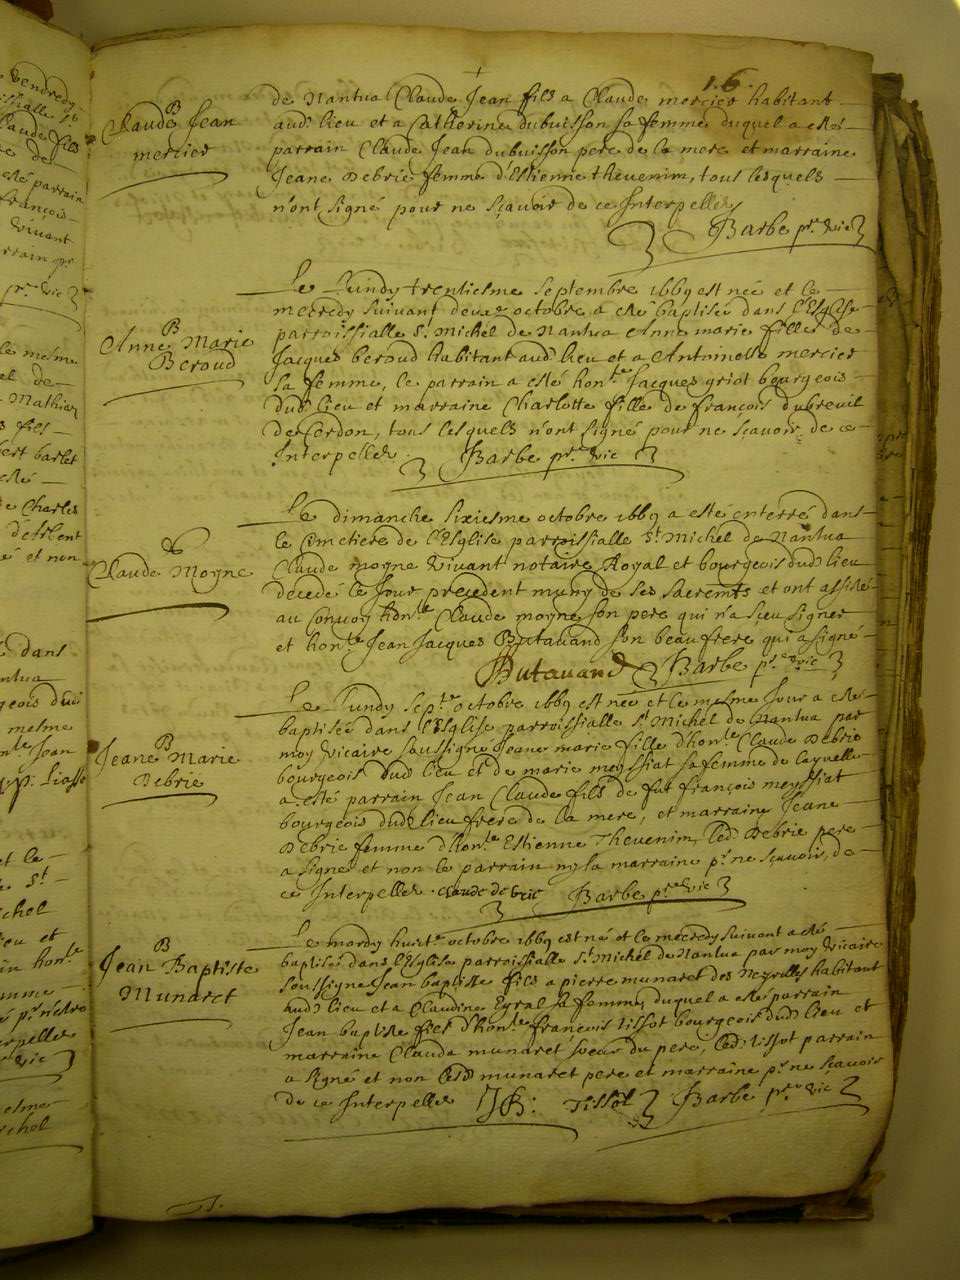 16.
B
Claude Jean
mercier
de Nantua Claude Jean fils a Claude mercier habitant
aud. lieu et a Catherine dubuisson sa femme duquel a esté
parrain Claude Jean dubuisson pere de la mere et marraine
Jeane Debrie femme d'Estienne thevenim, tous lesquels
n'ont signé pour ne sçavoir de ce Interpellés
Barbe pr. vic
B
Anne Marie
Beroud
Le Lundy trentiesme septembre 1669 est née et le
mecredy suivant deux.e octobre a esté baptisée dans l'Esglise
parroissialle St. Michel de Nantua Anne marie fille de
Jacques beroud habitant aud. lieu et a Antoinette mercier
sa femme, le parrain a esté hon.le Jacques griot bourgeois
dud. lieu et marraine Charlotte fille de françois dubreuil
de Cerdon, tous lesquels n'ont signé pour ne sçavoir de ce
Interpellés. Barbe pr.e vic
Claude Moyne
Le dimanche sixiesme octobre 1669 a esté enterré dans
le cimetiere de l'Esglise parroissialle St. Michel de Nantua
Claude moyne vivant notaire Royal et bourgeois dud. lieu
decedé le Jour precedent muny de ses sacremts et ont assisté
au convoy hon.le Claude moyne son pere qui n'a sceu signer
et hon.le Jean Jacques Butavand son beaufrere qui a signé
Butavand Barbe pr.e vic
B
Jeane Marie
Debrie
Le Lundy sept.e octobre 1669 est née et le mesme Jour a esté
baptisée dans l'Esglise parroissialle St. Michel de Nantua par
moy vicaire soussigné Jeane marie fille d'hon.le Claude Debrie
bourgeois dud. lieu et de marie meyssiat sa femme de laquelle
a esté parrain Jean Claude fils de fut françois meyssiat
bourgeois dud. lieu frere de la mere, et marraine Jeane
Debrie femme d'hon.le Estienne Thevenim, led. Debrie pere
a signé et non le parrain ny la marraine pr. ne sçavoir de
ce Interpellés. Claude de brie Barbe pr.e vic
B
Jean Baptiste
Munaret
Le mardy huict.e octobre 1669 est né et le mecredy suivant a esté
baptisé dans l'Esglise parroissialle St. Michel de Nantua par moy vicaire
soussigné Jean baptiste fils a pierre munaret des Neyrolles habitant
aud. lieu et a Claudine Eyral sa femme, duquel a esté parrain
Jean baptiste fils d'hon.le françois tissot bourgeois dud. lieu et
marraine Clauda munaret soeur du pere, led. tissot parrain
a signé et non lesd. munaret pere et marraine pr. ne sçavoir
de ce Interpellés JB: Tissot Barbe pr.e vic